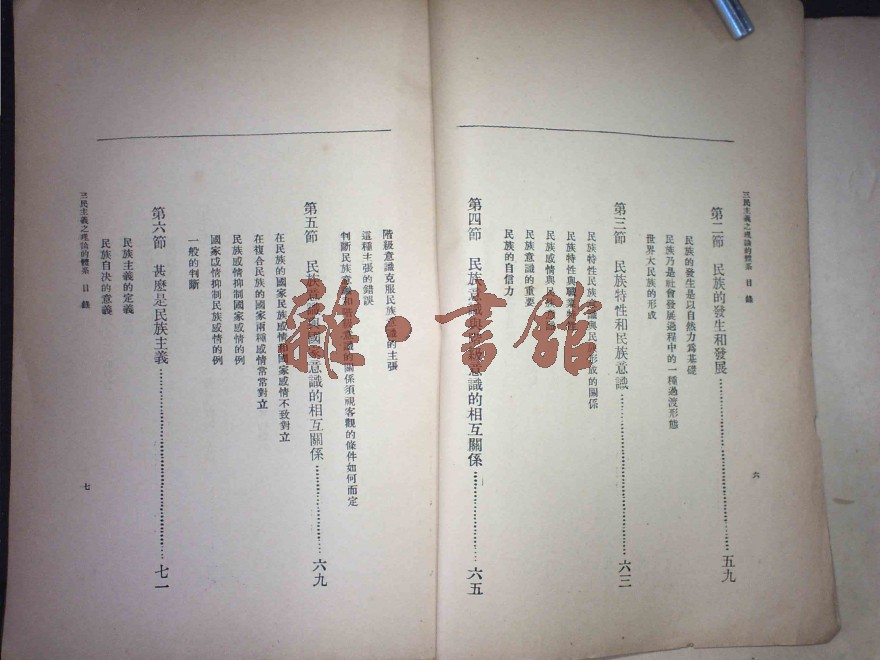 三民主義之理論的體系 目錄
六
第二節 民族的發生和發展……五九
民族的發生是以自然力爲基礎
民族乃是社會發展過程中的一種過渡形態
世界大民族的形成
第三節 民族特性和民族意識……六三
民族特性民族意識與民族形成的關係
民族特性與職業特性
民族感情與民族意識
民族意識的重要
民族的自信力
第四節 民族意識與階級意識的相互關係……六五
階級意識克服民族意識的主張
這種主張的錯誤
判斷民族意識和階級意識的關係須視客觀的條件如何而定
第五節 民族意識與國家意識的相互關係……六九
在民族的國家民族感情和國家感情不致對立
在複合民族的國家兩種感情常常對立
民族感情抑制國家感情的例
國家感情抑制民族感情的例
一般的判斷
第六節 甚麼是民族主義……七一
民族主義的定義
民族自決的意義
三民主義之理論的體系 目錄
七
雜·書館